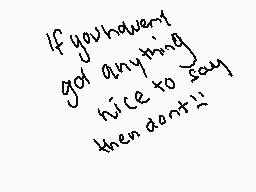 If you havent
got anything
nice to say
then dont!!